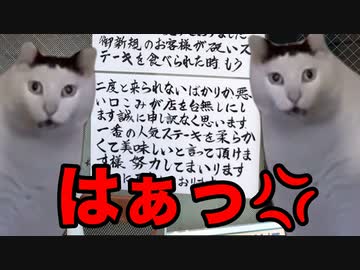 御新規のお客様が硬いス
テーキを食べられた時もう
二度と来られないばかりか悪
い口こみが店を台無しにし
ます誠に申し訳なく思います
一番の人気ステーキを柔らか
くて美味しいと言って頂けま
す様努力してまいります
はぁっ